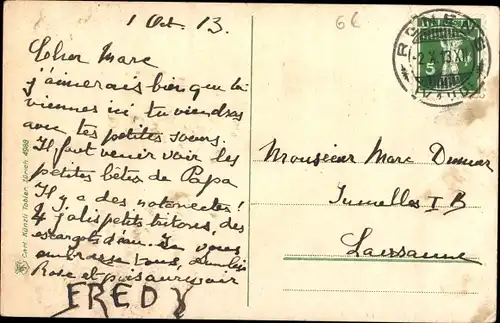 1 Oct. 13.
6c
Cher Marc
j'aimerais bien que tu
viennes ici tu viendras
avec tes petites sœurs.
Il faut venir voir les
petites bêtes de Papa
Il y a des notonectes!
4 jolis petits tritons, des
escargots d'eau. Je vous
embrasse tous,
Rose et puis au revoir
FRED
Monsieur Marc Dumur
Jumelles I B
Lausanne
Carl Künzli Tobler, Zürich 4998
5
-2.X.13.XI